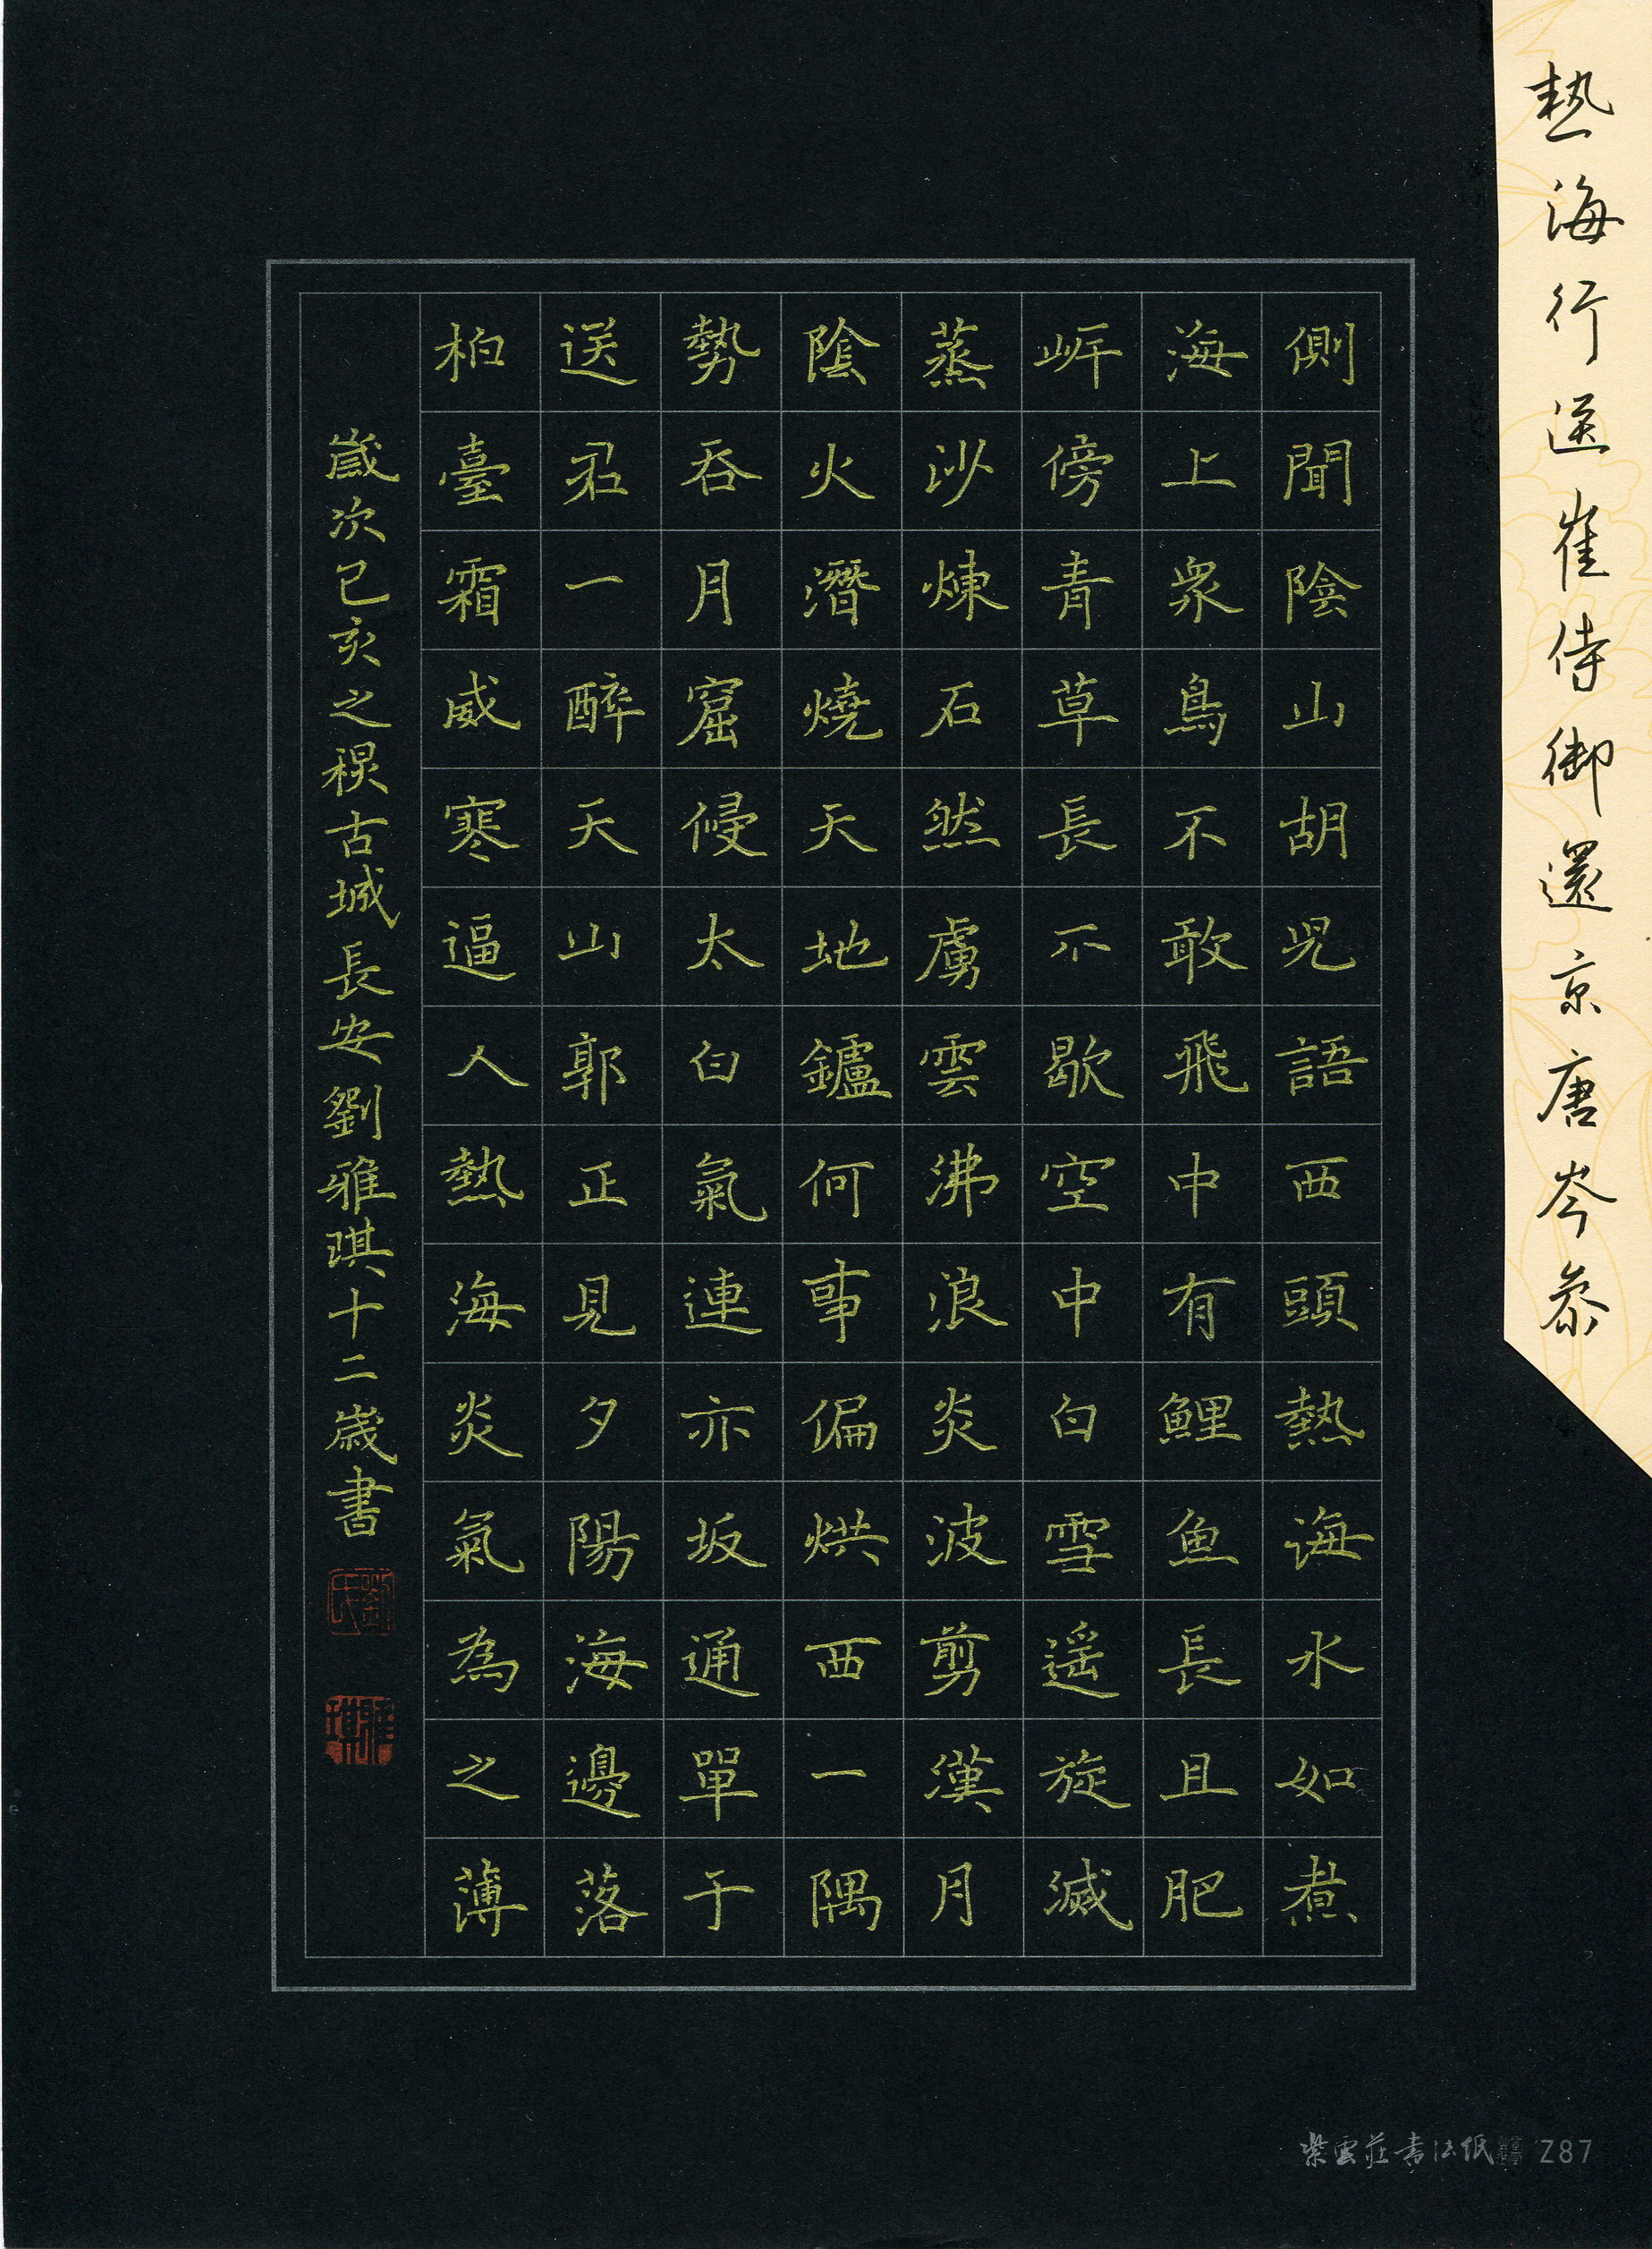 熱海行送崔侍御還京唐岑參
側聞陰山胡兒語西頭熱海水如煮
海上衆鳥不敢飛中有鯉魚長且肥
岍傍青草長不歇空中白雪遥旋滅
蒸沙煉石然虜雲沸浪炎波剪漢月
陰火潛燒天地鑪何事偏烘西一隅
勢吞月窟侵太白氣連赤坂通單于
送君一醉天山郭正見夕陽海邊落
柏臺霜威寒逼人熱海炎氣為之薄
歲次己亥之稞古城長安劉雅琪十二歲書
劉氏
雅琪
紫雲莊書法紙 Z87